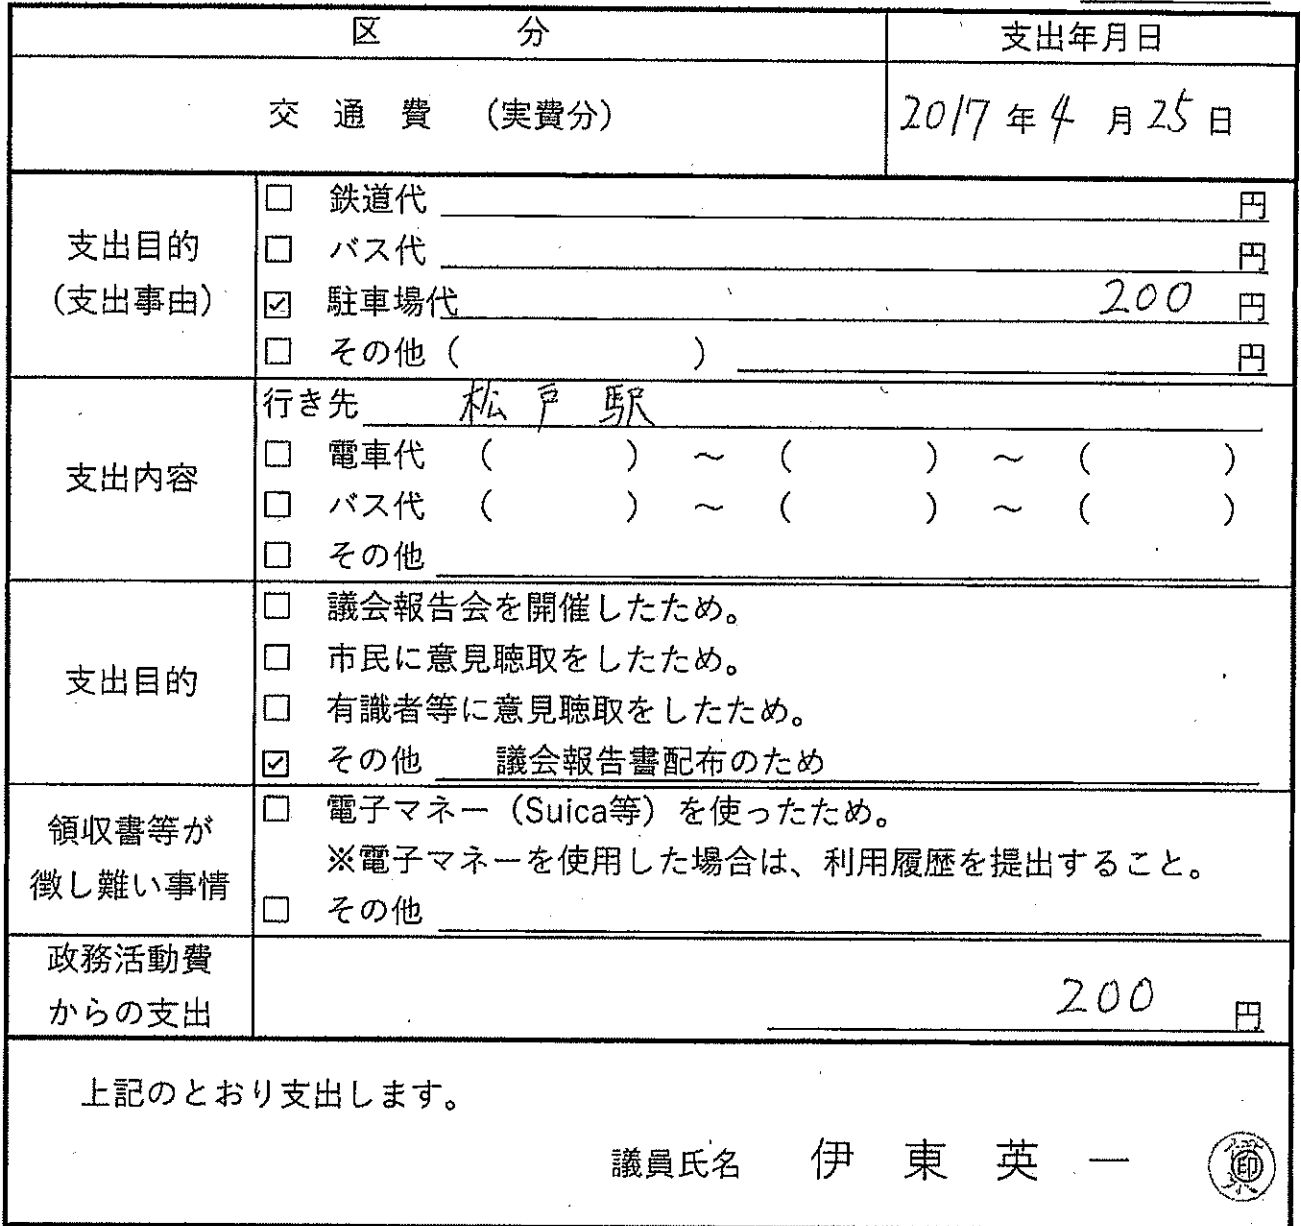 区 分 支出年月日
交 通 費 (実費分) 2017 年 4 月 25 日
支出目的
(支出事由)
□ 鉄道代 円
□ バス代 円
☑ 駐車場代 200 円
□ その他 ( ) 円
支出内容
行き先 松戸駅
□ 電車代 ( ) ~ ( ) ~ ( )
□ バス代 ( ) ~ ( ) ~ ( )
□ その他
支出目的
□ 議会報告会を開催したため。
□ 市民に意見聴取をしたため。
□ 有識者等に意見聴取をしたため。
☑ その他 議会報告書配布のため
領収書等が
徴し難い事情
□ 電子マネー(Suica等)を使ったため。
※電子マネーを使用した場合は、利用履歴を提出すること。
□ その他
政務活動費
からの支出
200 円
上記のとおり支出します。
議員氏名 伊 東 英 一 印